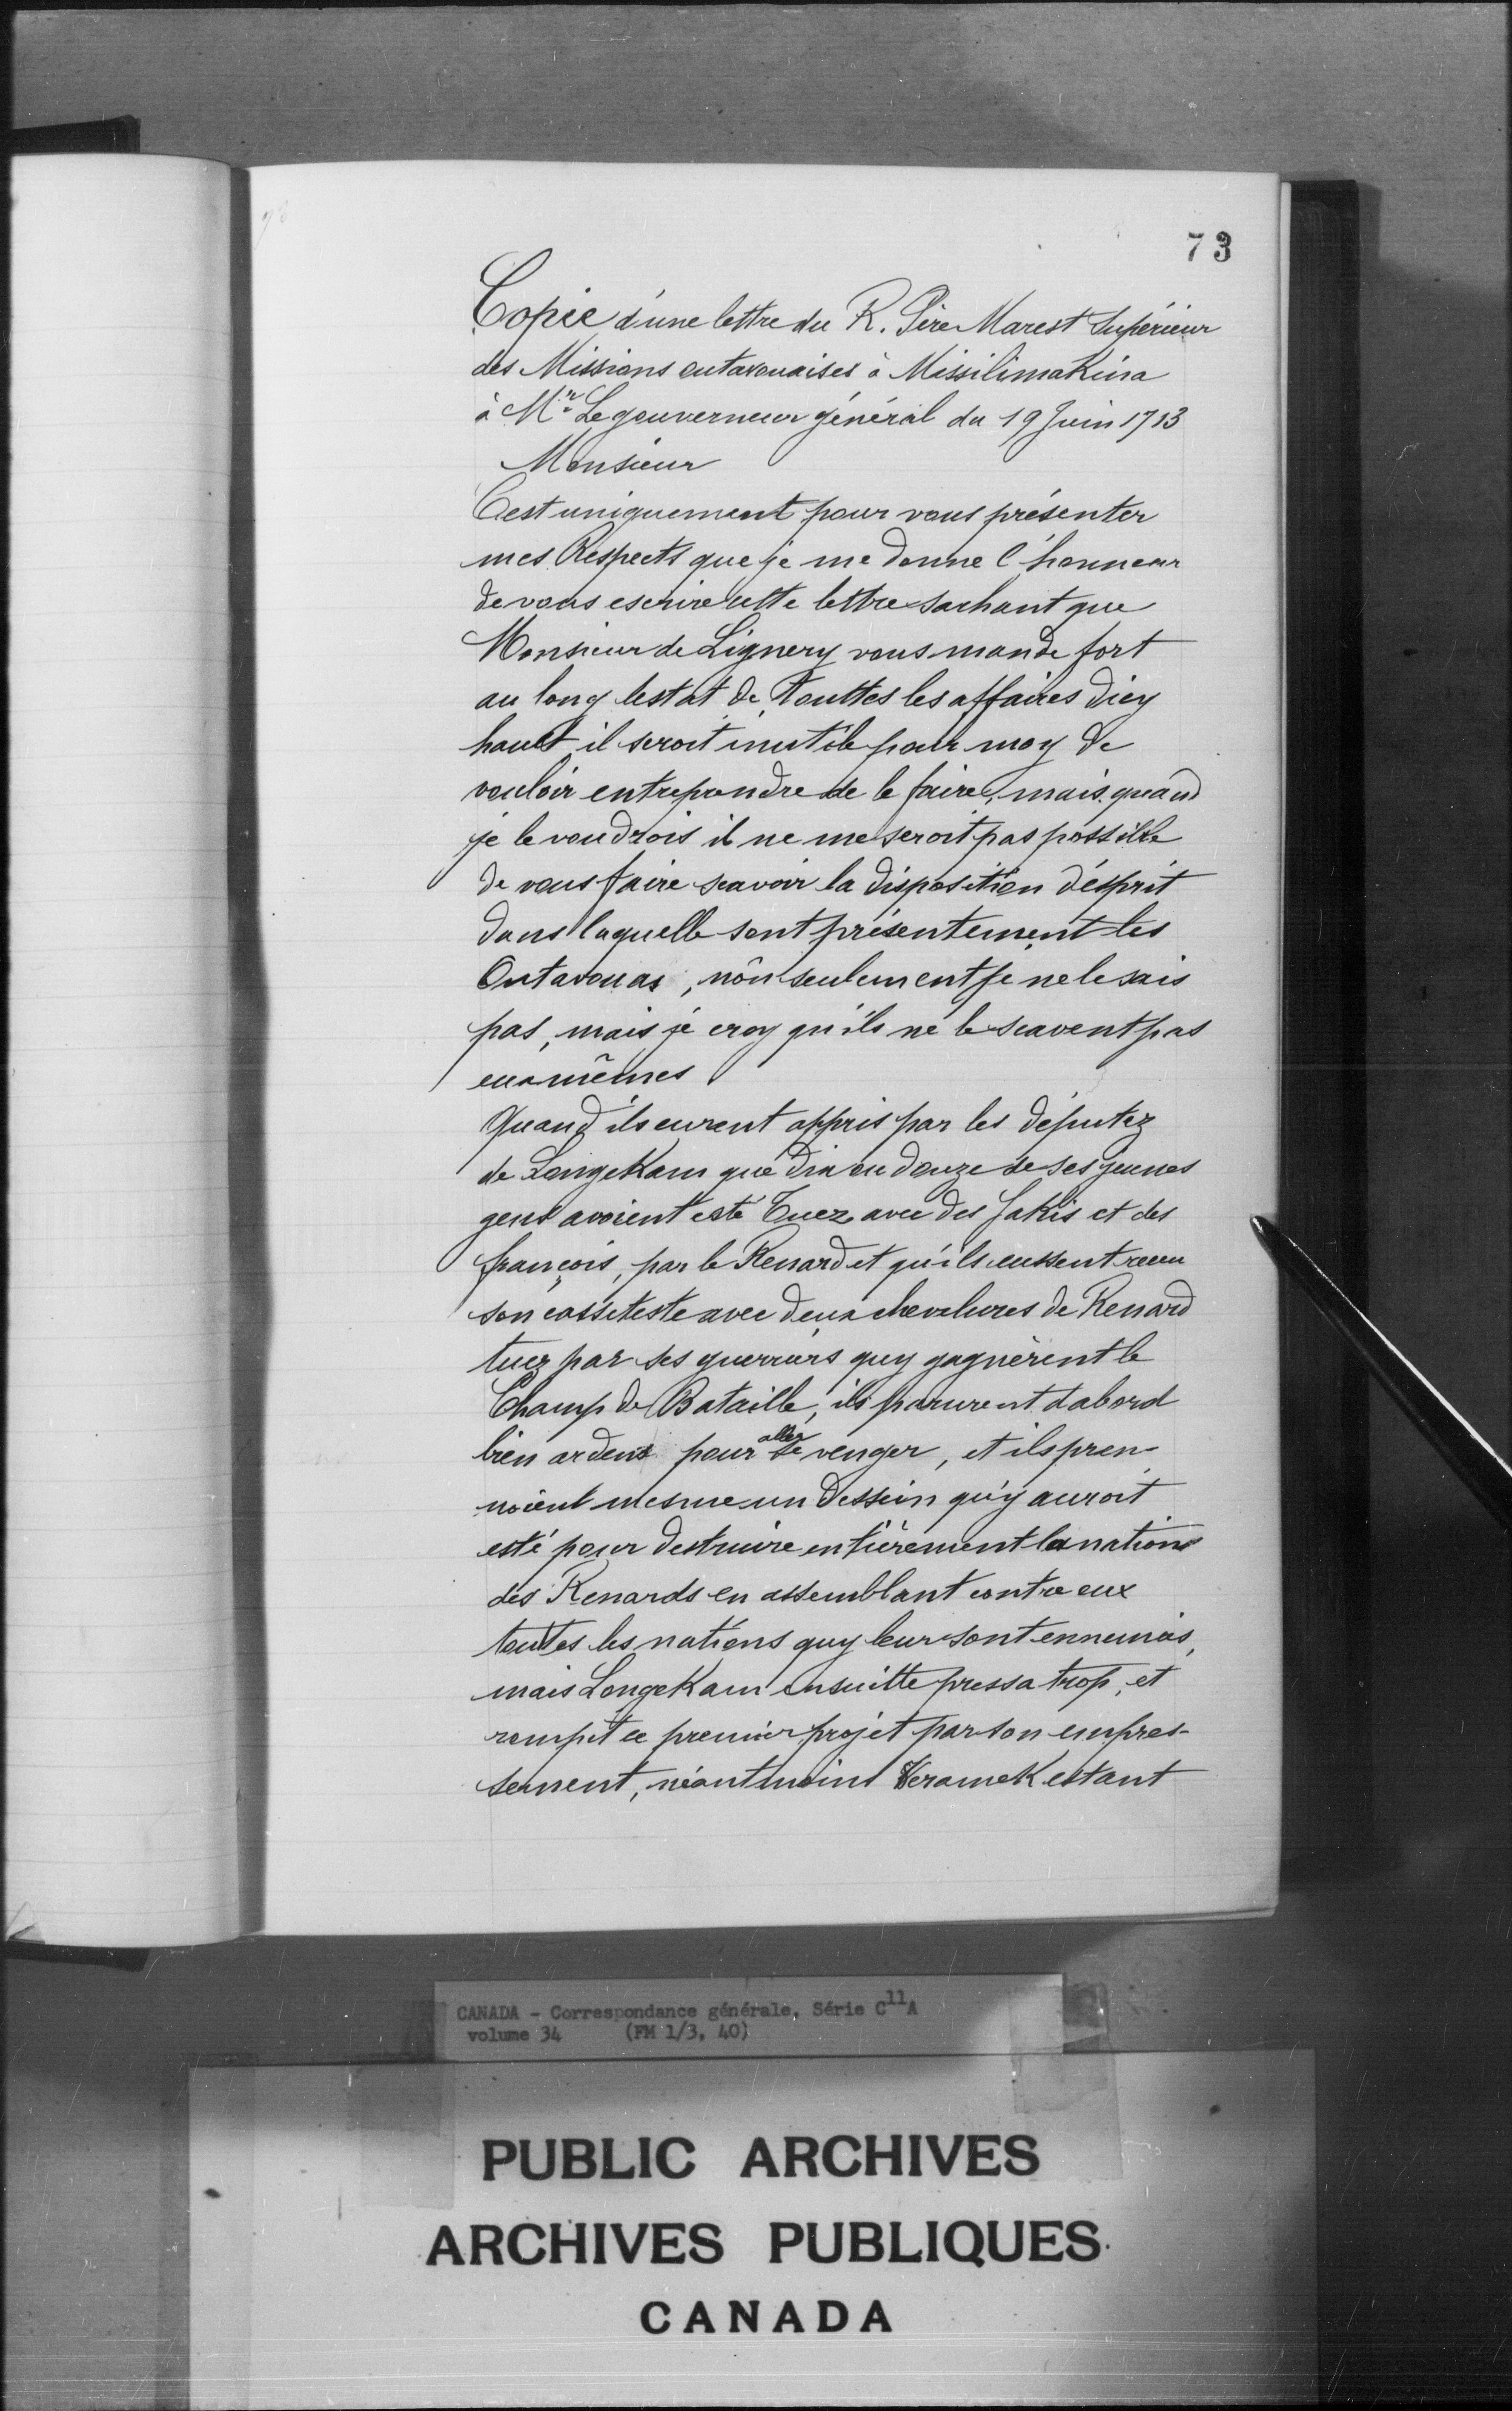 73
Copie d'une lettre du R. Père Marest Supérieur
des Missions outavouaises à Missilimakina
à Mr. Le gouverneur général du 19 Juin 1713
Monsieur
C'est uniquement pour vous présenter
mes Respects que je me donne l'honneur
de vous escrire cette lettre sachant que
Monsieur de Lignery vous mande fort
au long lestat de Touttes les affaires dicy
hault il seroit inutile pour moy de
vouloir entreprendre de le faire, mais quand
je le voudrois il ne me seroit pas possible
de vous faire scavoir la disposition d'ésprit
dans laquelle sont présentement les
Outavouas, non seulement je ne le sais
pas, mais je croy qu'ils ne le scavent pas
eux mêmes
Quand ils eurent appris par les députez
de LongeKam que dix ou douze de ses jeunes
gens avoient esté Tuez avec des Sakis et des
françois, par le Renard et qu'ils eussent receu
son casseteste avec deux chevelures de Renard
tuez par ses guerriers quy gagnèrent le
Champ de Bataille, ils parurent dabord
bien ardens pour aller se venger, et ils pren-
noient mesme un dessein qu'y auroit
esté pour destruire entièrement la nation
des Renards en assemblant contre eux
toutes les nations quy leur sont ennemies,
mais LongeKam ensuitte pressa trop, et
rompit ce premier projet par son empres-
sement, néantmoins KerameK estant
CANADA - Correspondance générale, Série C11A
volume 34 (FM 1/3, 40)
PUBLIC ARCHIVES
ARCHIVES PUBLIQUES
CANADA